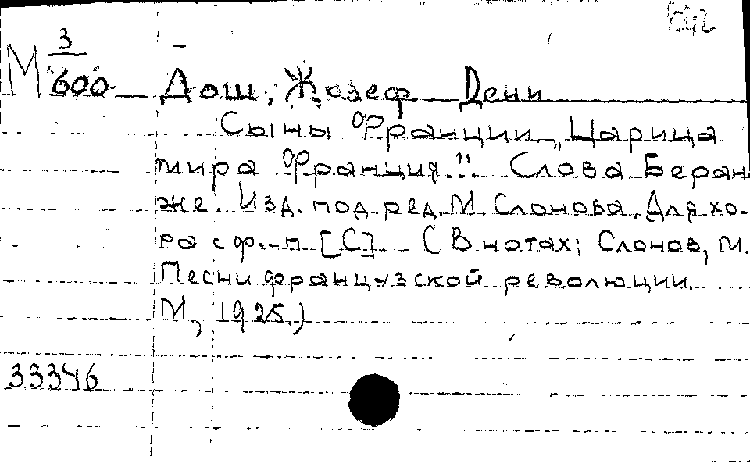 М 3/600 Дош, Жозеф Дени
Сыны Франции „Царица
мира Франция!!" Слова Беран
же. Изд. под ред. М. Слонова. Для хо-
ра с ф.-п. [С] (В нотах: Слонов, М.
Песни французской революции
М., 1925.)
33346